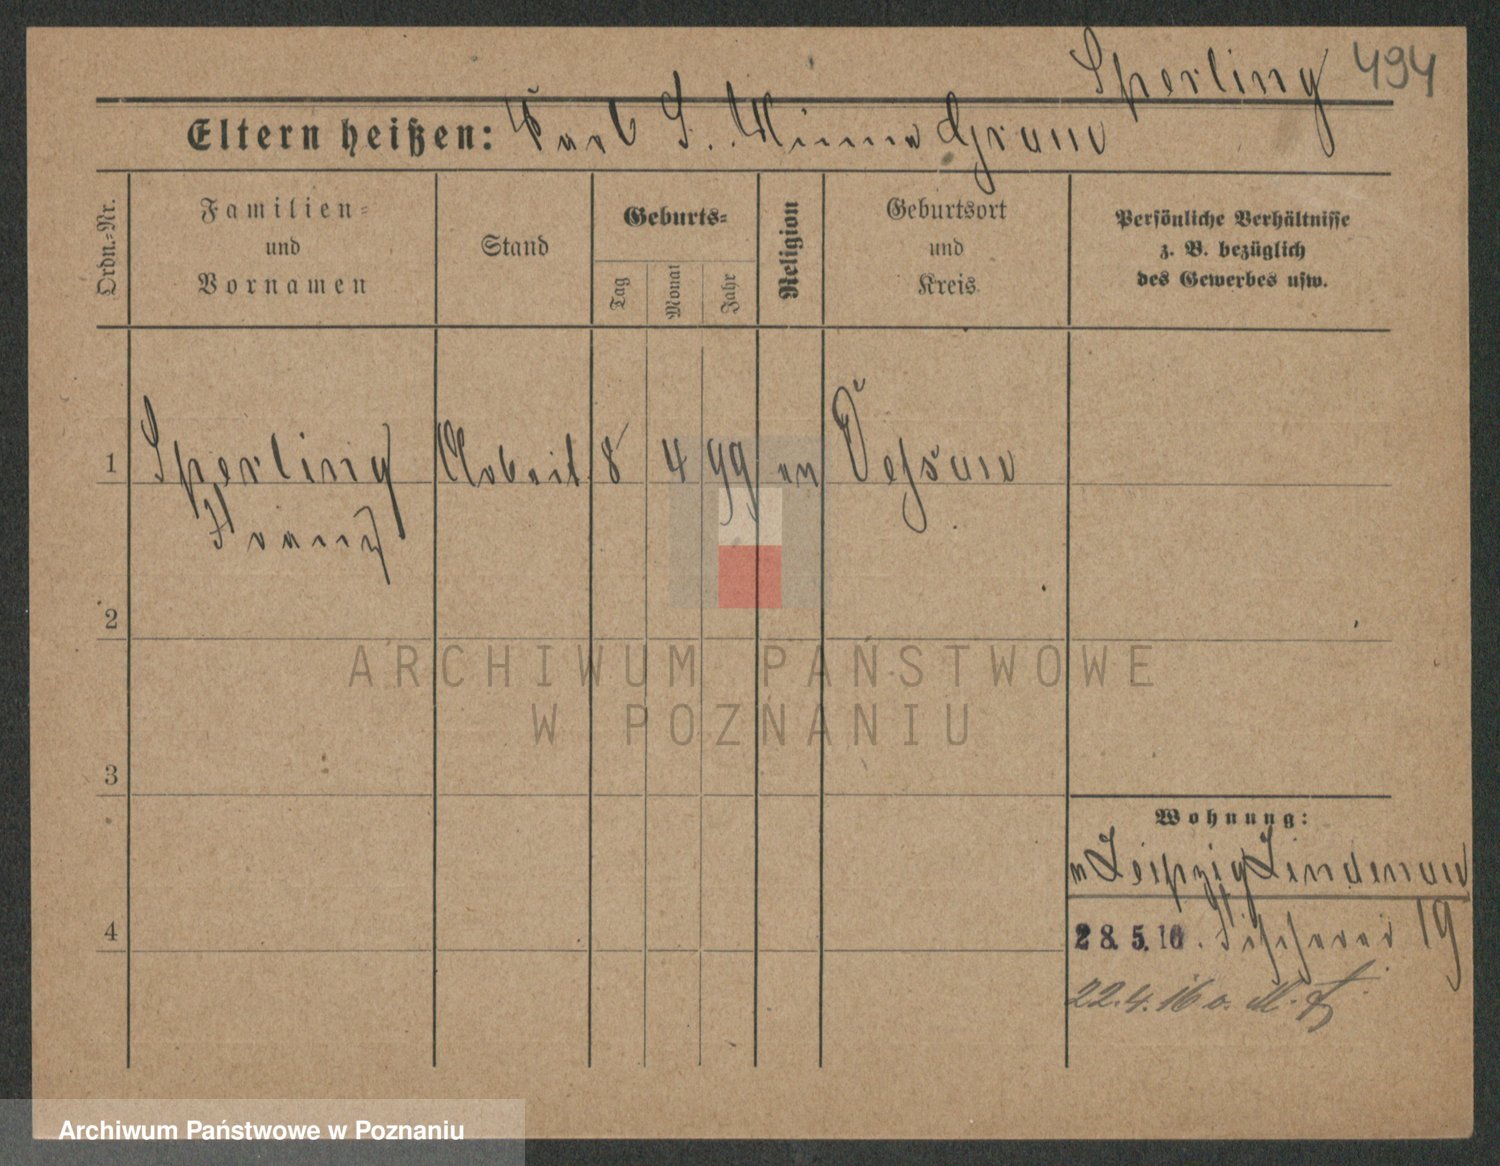 Sperling 494
Eltern heißen: Karl S. Minna Graul
Ordn.-Nr.
Familien-
und
Vornamen
Stand
Geburts-
Tag
Monat
Jahr
Religion
Geburtsort
und
Kreis
Persönliche Verhältnisse
z. B. bezüglich
des Gewerbes usw.
1 Sperling Arbeit. 8 4 99 ev Dessau
Franz
2
3
4
ARCHIWUM PAŃSTWOWE
W POZNANIU
Wohnung:
n Leipzig Lindenau
28. 5. 16. 19
22.4.16 o. M.
Archiwum Państwowe w Poznaniu